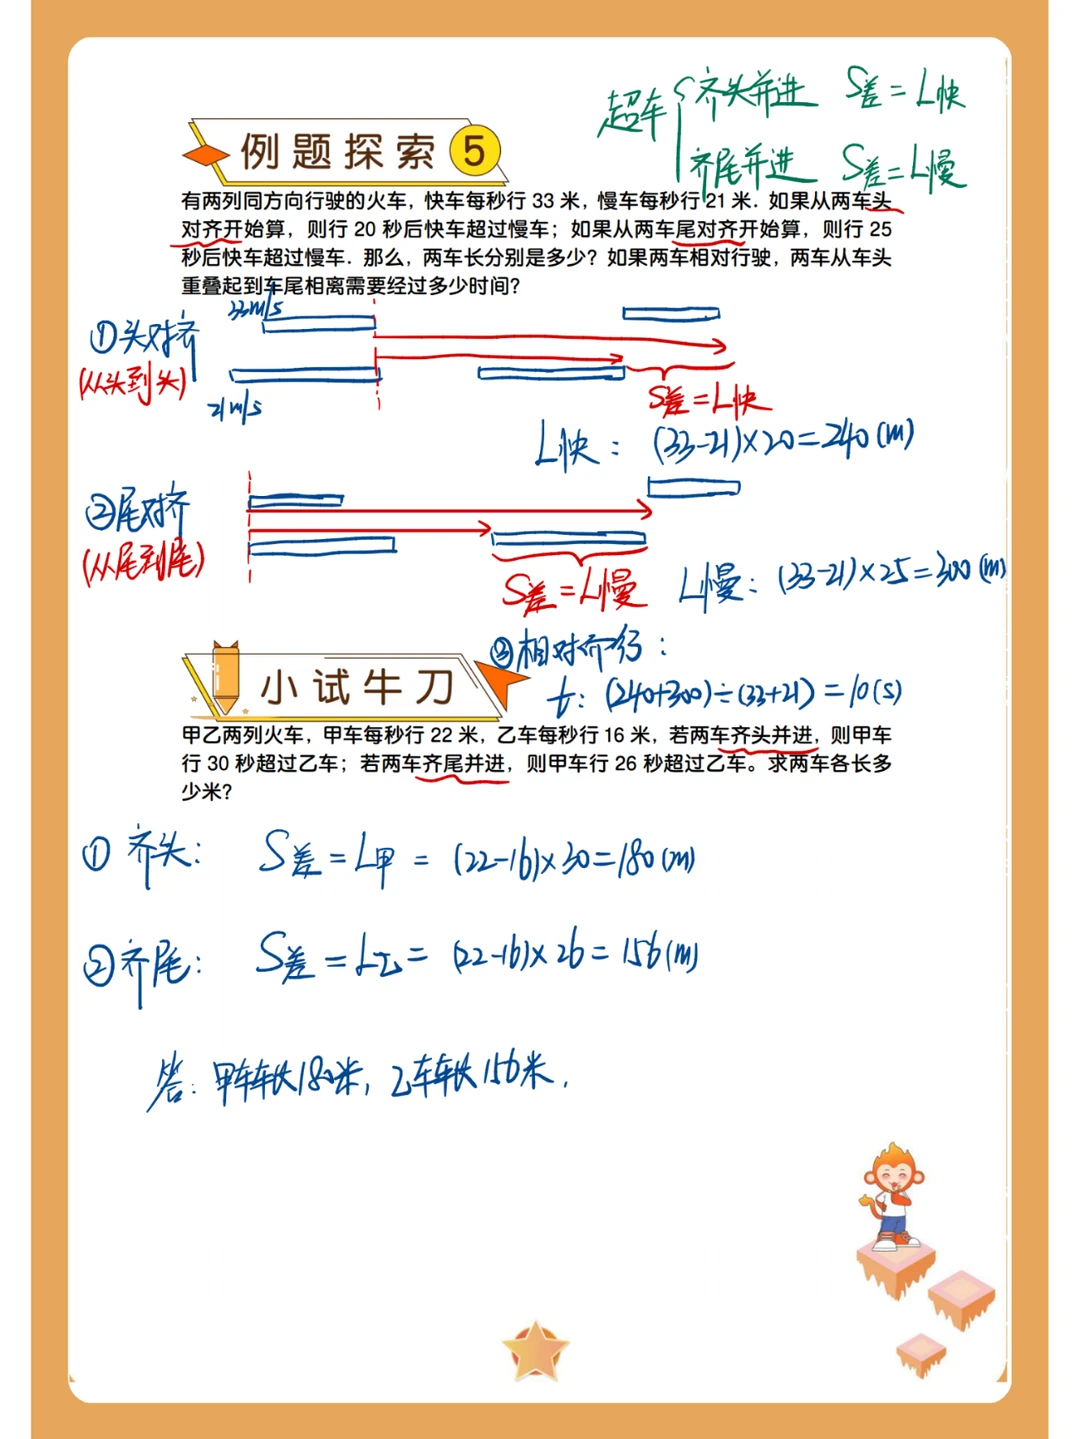 超车 齐头并进 S差=L快
齐尾并进 S差=L慢
例题探索 5
有两列同方向行驶的火车，快车每秒行 33 米，慢车每秒行 21 米．如果从两车头
对齐开始算，则行 20 秒后快车超过慢车；如果从两车尾对齐开始算，则行 25
秒后快车超过慢车．那么，两车长分别是多少？如果两车相对行驶，两车从车头
重叠起到车尾相离需要经过多少时间？
33m/s
①头对齐
(从头到头)
21m/s
S差=L快
L快：(33-21)×20=240(m)
②尾对齐
(从尾到尾)
S差=L慢
L慢：(33-21)×25=300(m)
③相对而行：
t：(240+300)÷(33+21)=10(s)
小试牛刀
甲乙两列火车，甲车每秒行 22 米，乙车每秒行 16 米，若两车齐头并进，则甲车
行 30 秒超过乙车；若两车齐尾并进，则甲车行 26 秒超过乙车。求两车各长多
少米？
①齐头： S差=L甲=(22-16)×30=180(m)
②齐尾： S差=L乙=(22-16)×26=156(m)
答：甲车车长180米，乙车车长156米．